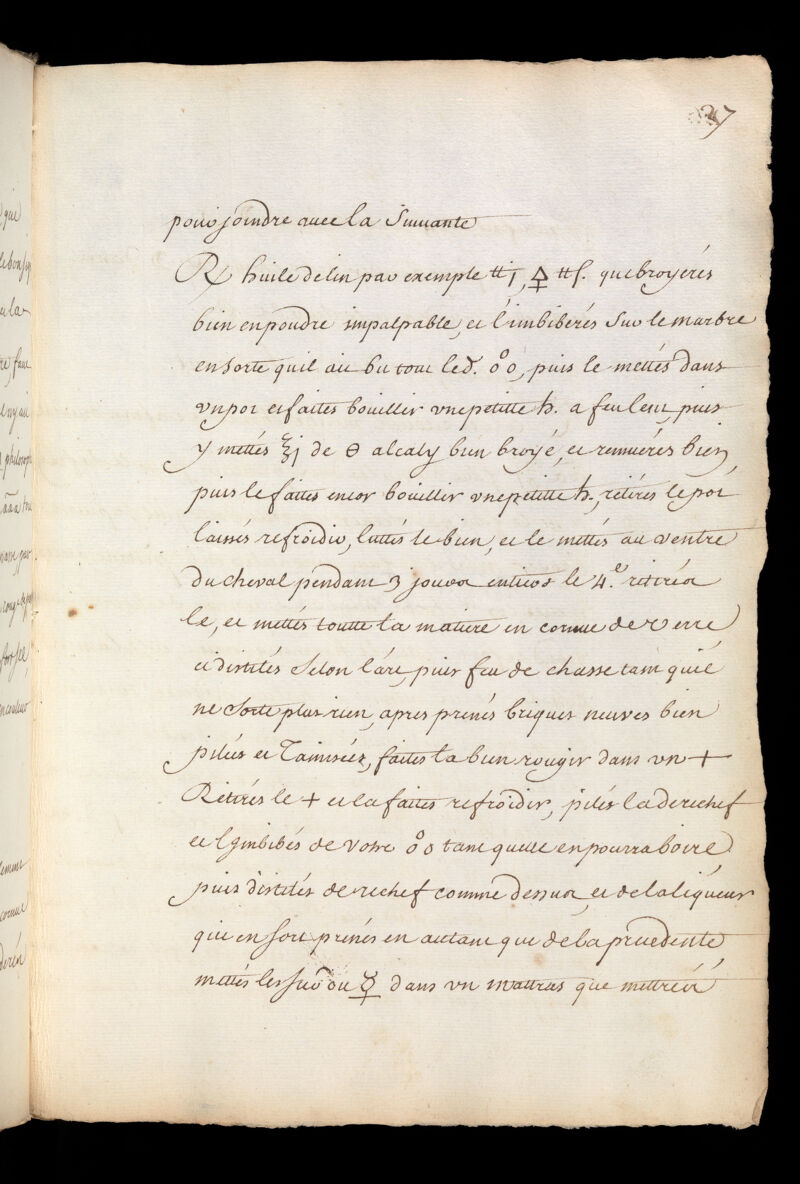 27
pour joindre avec la Suivante
℞ huile de lin par exemple ℔j, 🜍 ℔ſ. que broyerés
bien en poudre impalpable, et l'imbiberés Sur le marbre
en Sorte quil ait bu tout led. o͡o, puis le mettés dans
vn pot et faites bouillir vne petitte h. a feu lent, puis
y mettés ℥j de 🜔 alcaly bien broyé, et remuerés bien
puis le faittes encor bouillir vne petitte h., retirés le pot
laissés refroidir, luttés le bien, et le mettés au ventre
du cheval pendant 3 jours entiers le 4.e retirés
le, et mettés toutte la matiere en cornue de verre
et distilés Selon l'art, puis feu de chasse tant qu'il
ne Sorte plus rien, apres prenés briques neuves bien
pilées et Tamisées, faites la bien rougir dans vn +
Retirés le + et la faites refroidir, pilés la derechef
et l'imbibés de votre o͡o tant quelle en pourra boire
puis distilés derechef comme dessus, et de la liqueur
qui en Sort prenés en autant que de la precedente
mettés les Sur du ☿ dans vn mattras que mettrés
que
a la